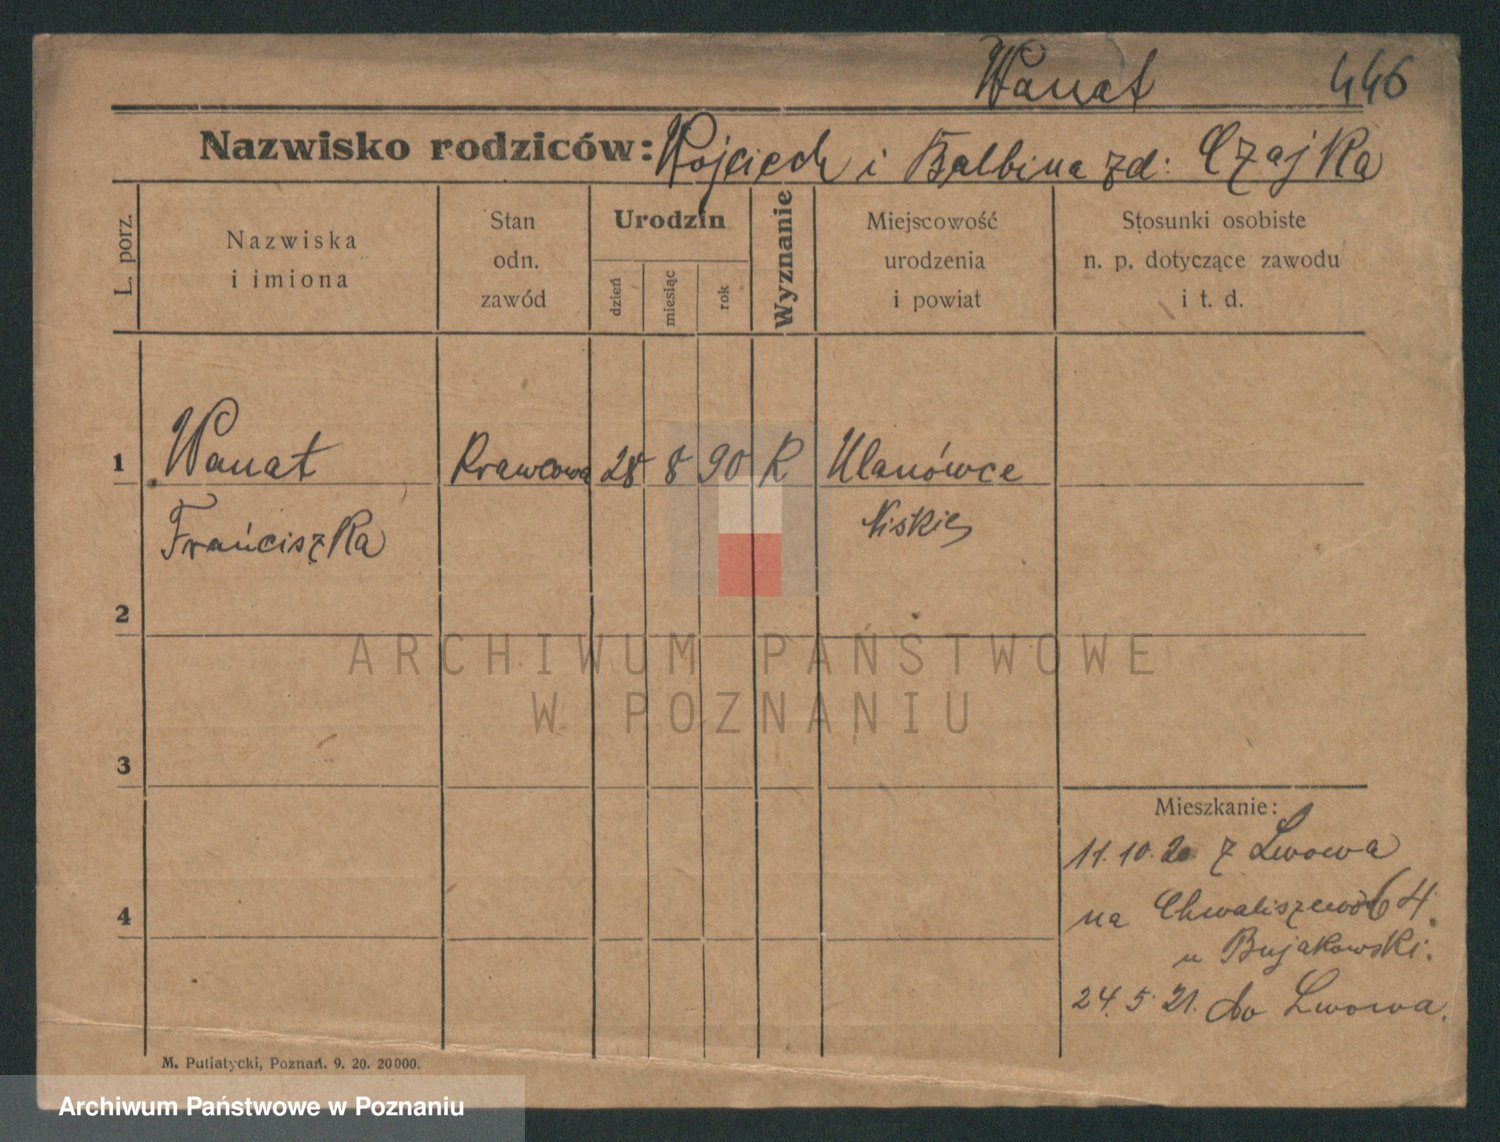 Wanat 446
Nazwisko rodziców: Wojciech i Balbina zd: Czajka
L. porz.
Nazwiska
i imiona
Stan
odn.
zawód
Urodzin
dzień
miesiąc
rok
Wyznanie
Miejscowość
urodzenia
i powiat
Stosunki osobiste
n. p. dotyczące zawodu
i t. d.
1 Wanat Krawcowa 28 8 90 R Ulanówce
Frańciszka Niskie
2
ARCHIWUM PAŃSTWOWE
W POZNANIU
3
Mieszkanie:
11.10.20. z Lwowa
4
na Chwaliszewo 64.
u Bujakowski.
24.5.21. do Lwowa.
M. Putiatycki, Poznań. 9. 20. 20000.
Archiwum Państwowe w Poznaniu